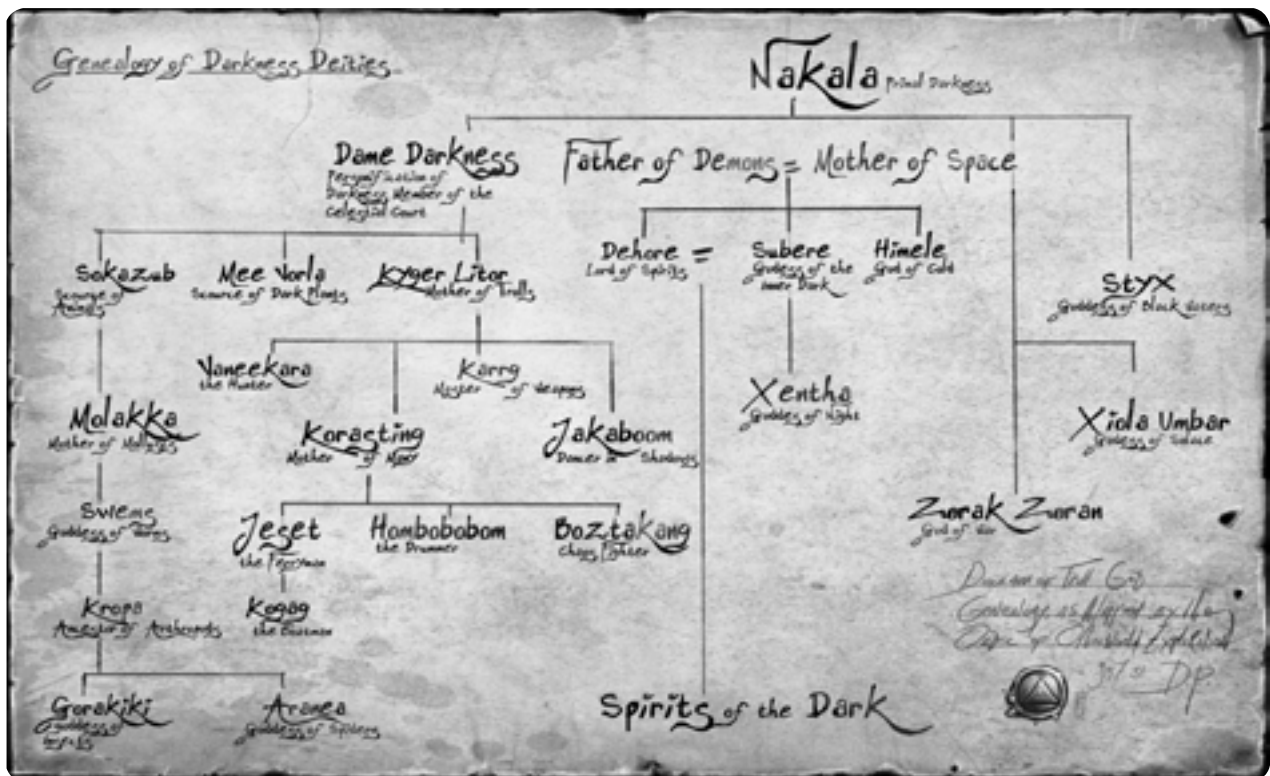 Genealogy of Darkness Deities
Nakala Primal Darkness
Dame Darkness
Personification of
Darkness, Member of the
Celestial Court
Father of Demons = Mother of Space
Sokazub
Scourge of
Mee Vorla
Scourge of Dark Plants
Kyger Litor
Mother of Trolls
Dehore =
Lord of Spirits
Subere
Godess of the
inner Dark
Himele
God of Cold
Styx
Goddess of Black Waters
Vaneekara
the Hunter
Karrg
Master of Weapons
Xentha
Goddess of Night
Molakka
Mother of
Korasting
Mother of
Jakaboom
Dancer in Shadows
Xiola Umbar
Godess of Solace
Swems
Goddess of
Jeset
the Ferryman
Hombobobom
the Drummer
Boztakang
Chaos Fighter
Zorak Zoran
God of War
Kropa
Ancestor of Arthropods
Kogag
the Boatman
Gorakiki
goddess of
Aranea
Goddess of Spiders
Spirits of the Dark
Genealogy as
DP.